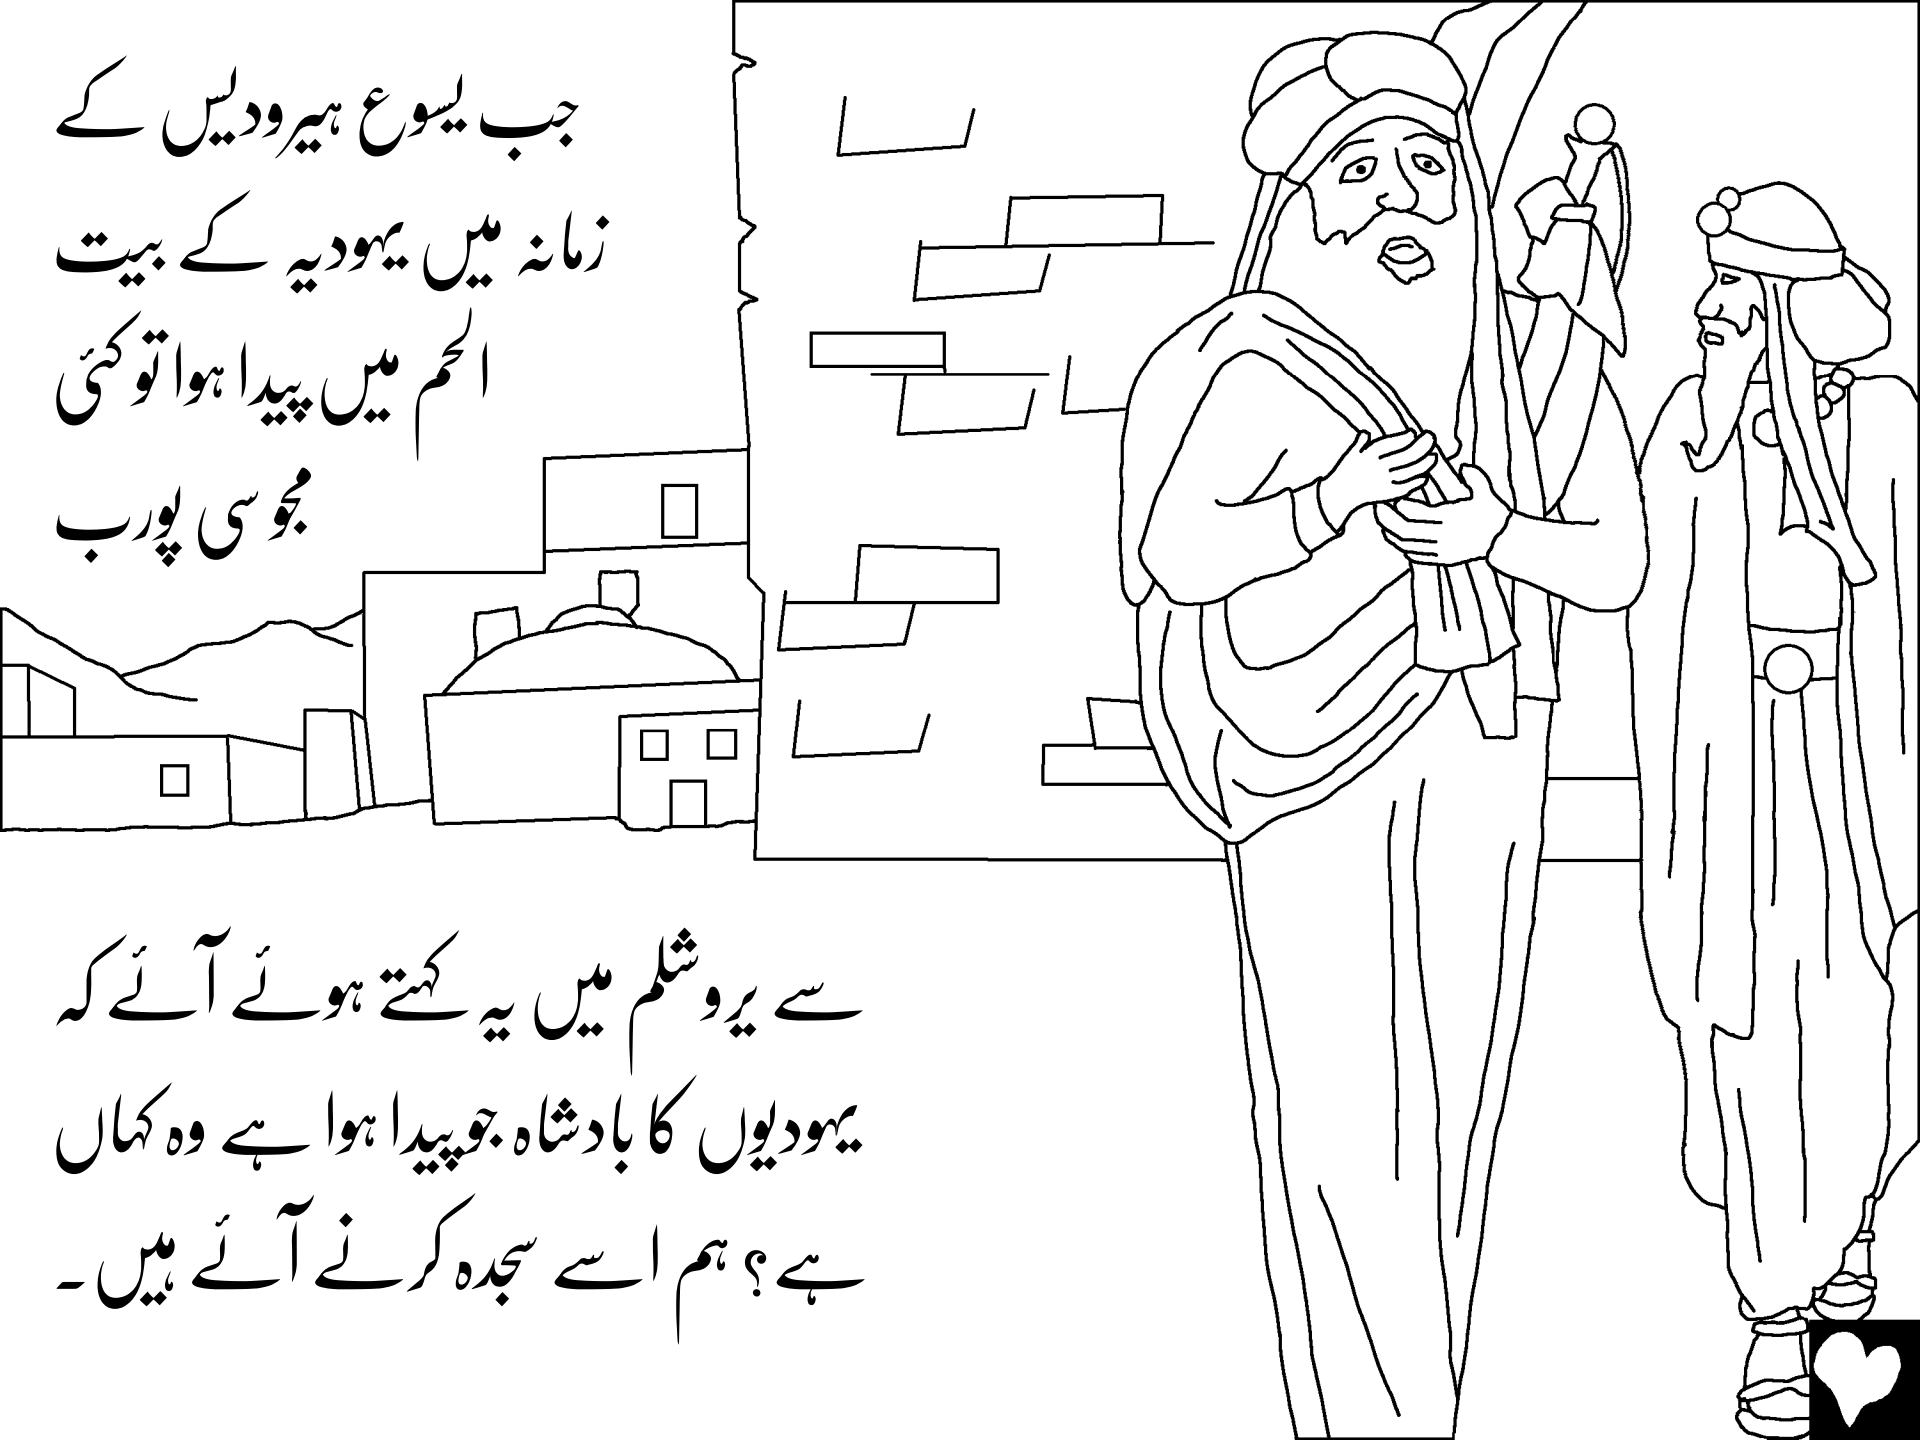 جب یسوع ہیرودیس کے
زمانہ میں یہودیہ کے بیت
الحم میں پیدا ہوا تو کئی
مجوسی پورب
سے یروشلم میں یہ کہتے ہوئے آئے کہ
یہودیوں کا بادشاہ جو پیدا ہوا ہے وہ کہاں
ہے؟ ہم اسے سجدہ کرنے آئے ہیں۔